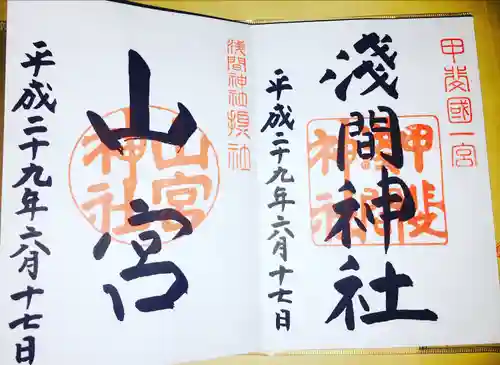 甲斐國一宮
淺間神社
甲斐
淺間
神社
平成二十九年六月十七日
淺間神社摂社
山宮
山宮
神社
平成二十九年六月十七日